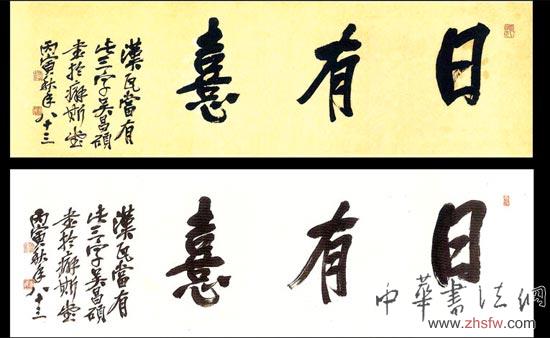 日有憙
漢瓦當有
此三字吳昌碩
書於癖斯堂
丙寅秋年八十三
日有憙
漢瓦當有
此三字吳昌碩
書於癖斯堂
丙寅秋年八十三
中華書法網
www.zhsfw.com